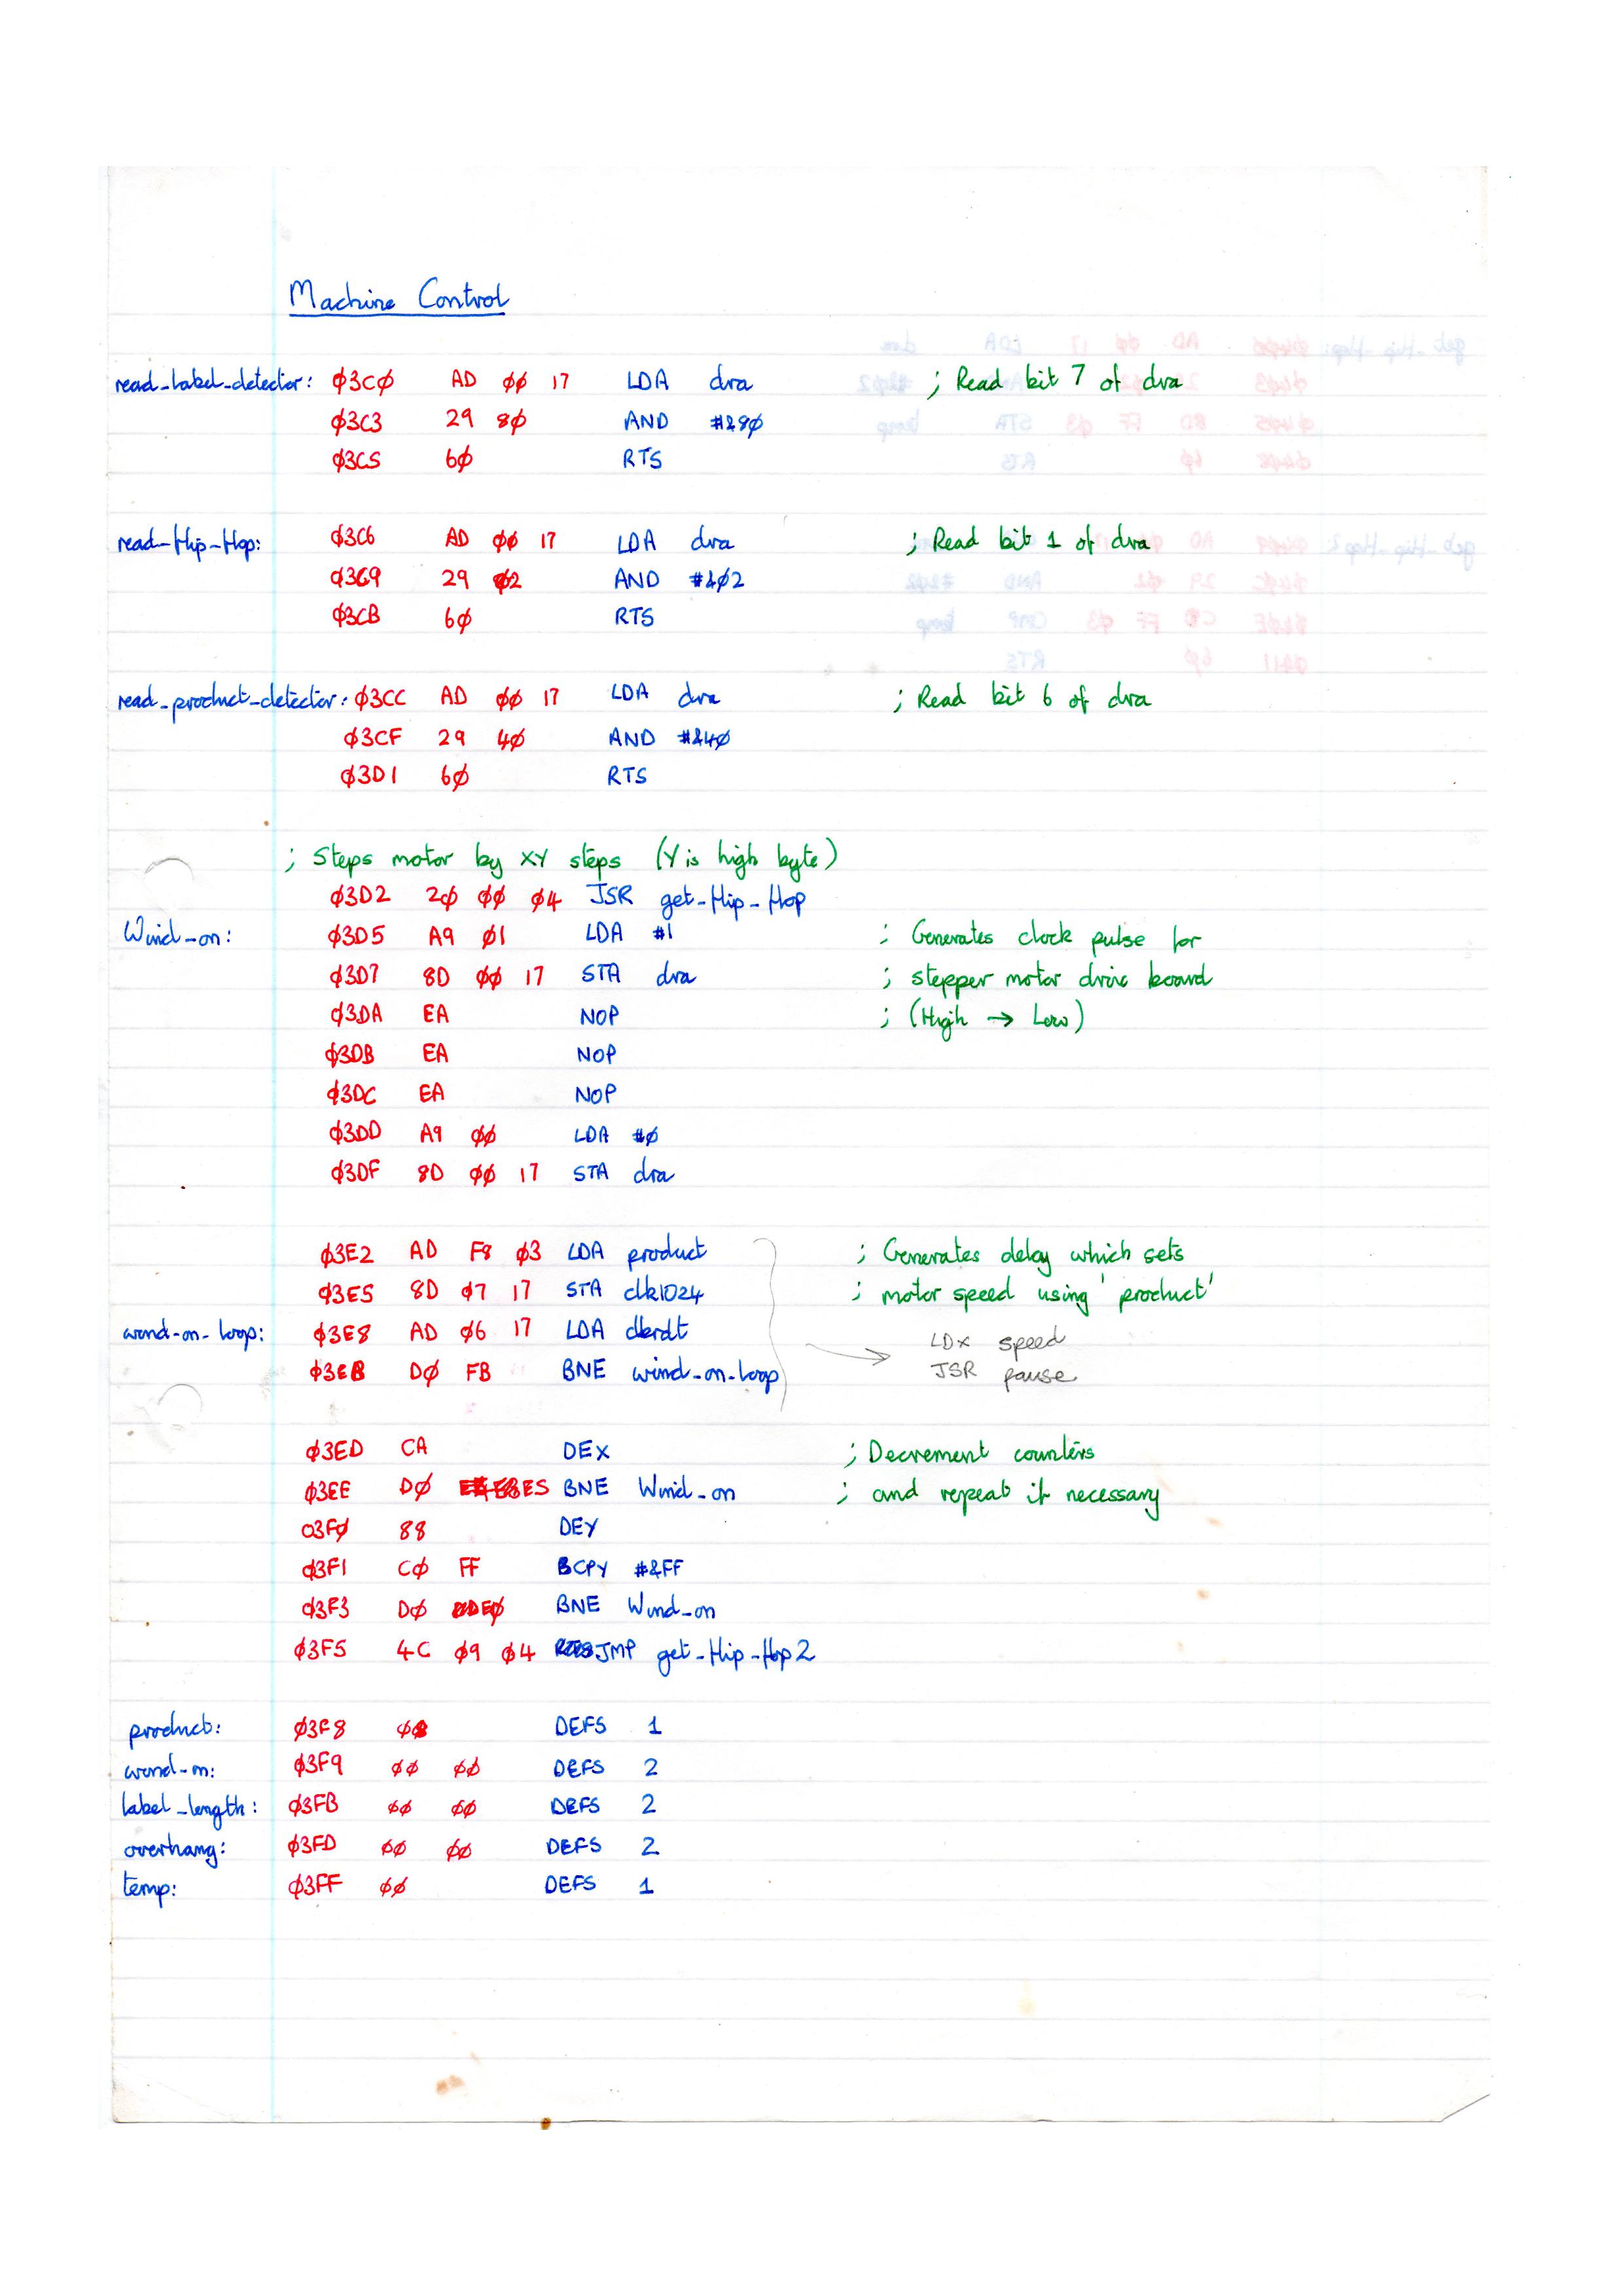 Machine Control
read_label_detector: Ø3CØ AD ØØ 17 LDA dra ; Read bit 7 of dra
Ø3C3 29 8Ø AND #&8Ø
Ø3C5 6Ø RTS
read_flip_flop: Ø3C6 AD ØØ 17 LDA dra ; Read bit 1 of dra
Ø3C9 29 Ø2 AND #&Ø2
Ø3CB 6Ø RTS
read_product_detector: Ø3CC AD ØØ 17 LDA dra ; Read bit 6 of dra
Ø3CF 29 4Ø AND #&4Ø
Ø3D1 6Ø RTS
; Steps motor by XY steps (Y is high byte)
Ø3D2 2Ø ØØ Ø4 JSR get_flip_flop
Wind_on: Ø3D5 A9 Ø1 LDA #1 ; Generates clock pulse for
Ø3D7 8D ØØ 17 STA dra ; stepper motor drive board
Ø3DA EA NOP ; (High → Low)
Ø3DB EA NOP
Ø3DC EA NOP
Ø3DD A9 ØØ LDA #Ø
Ø3DF 8D ØØ 17 STA dra
Ø3E2 AD F8 Ø3 LDA product ; Generates delay which sets
Ø3E5 8D Ø7 17 STA clk1024 ; motor speed using 'product'
wind_on_loop: Ø3E8 AD Ø6 17 LDA clkrdt
LDX speed
Ø3EB DØ FB BNE wind_on_loop
JSR pause
Ø3ED CA DEX ; Decrement counters
Ø3EE DØ E5 BNE Wind_on ; and repeat if necessary
03FØ 88 DEY
Ø3F1 CØ FF CPY #&FF
Ø3F3 DØ EØ BNE Wind_on
Ø3F5 4C Ø9 Ø4 JMP get_flip_flop2
product: Ø3F8 DEFS 1
wind_on: Ø3F9 ØØ ØØ DEFS 2
label_length: Ø3FB ØØ ØØ DEFS 2
overhang: Ø3FD ØØ ØØ DEFS 2
temp: Ø3FF ØØ DEFS 1